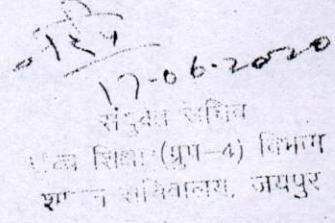 17-06-2020
संयुक्त सचिव
उच्च शिक्षा (ग्रुप-4) विभाग
शासन सचिवालय, जयपुर